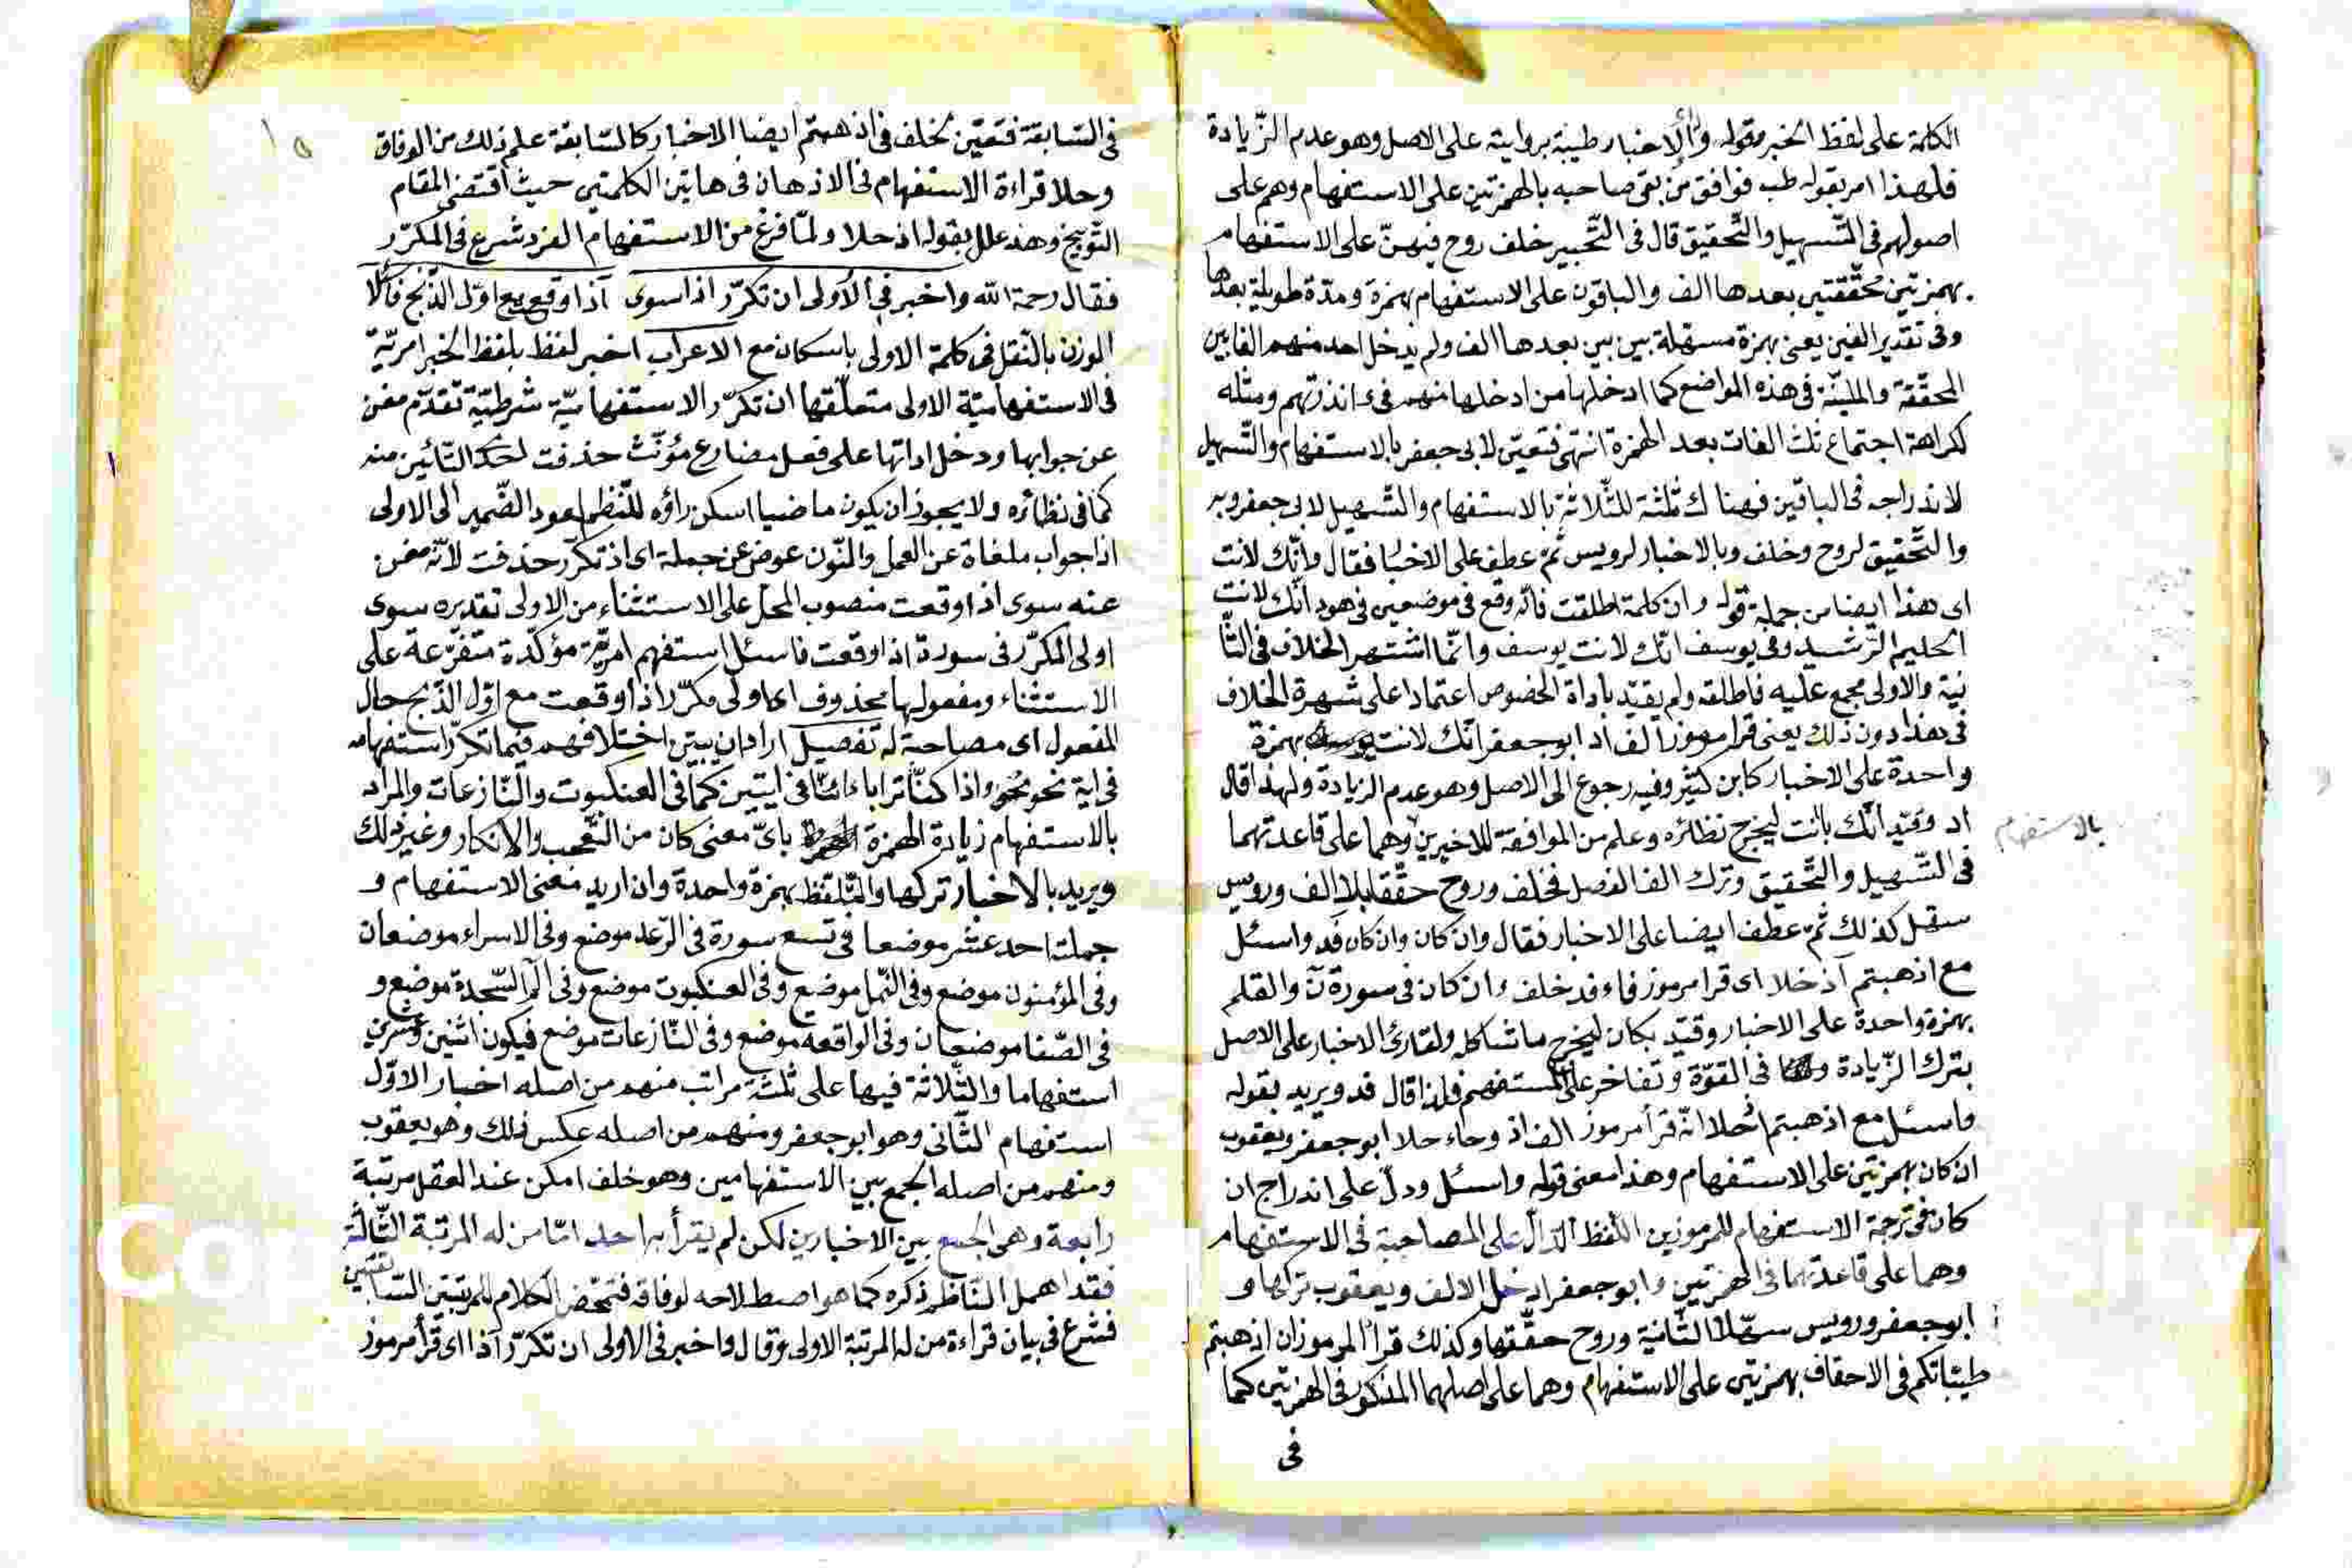 الكلمة على لفظ الخبر مقوله والاخبار طيبة بروايته على الاصل وهو عدم الزّيادة
فلهذا امر بقوله طب فوافق من بقى صاحبه بالهمزتين على الاستفهام وهم على
اصولهم فى التّسهيل والتّحقيق قال فى التّحبير خلف روح فيهنّ على الاستفهام
بهمزتين محقّقتين بعدها الف والباقون على الاستفهام بهمزة ومدّة طويلة بعدها
وفى تقدير الفين يعنى بهمزة مسهّلة بين بين بعدها الف ولم يدخل احد منهم الفا بين
المحقّقة والمليّنة فى هذه المواضع كما ادخلها من ادخلها منهم فى ءانذرتهم ومثله
لكراهة اجتماع ثلث الفات بعد الهمزة انتهى فتعيّن لابى جعفر بالاستفهام والتّسهيل
لاندراجه فى الباقين فهناك ثلثة للثّلاثة بالاستفهام والتّسهيل لابى جعفر وبه
والتّحقيق لروح وخلف وبالاخبار لرويس ثمّ عطف على الاخبا فقال وانّك لانت
اى هذا ايضا من جملة قوله وان كلمة اطلقت فانّه وقع فى موضعين فى هود انّك لانت
الحليم الرّشيد وفى يوسف انّك لانت يوسف وانّما اشتهر الخلاف فى الثّا
نية والاولى مجمع عليه فاطلقه ولم يقيّد باداة الخصوص اعتمادا على شهرة الخلاف
فى هذا دون ذلك يعنى قرا مرموز الف اد ابو جعفر انّك لانت بهمزة
واحدة على الاخبار كابن كثير وفيه رجوع الى الاصل وهو عدم الزيادة ولهذا قال
اد وقيّد انّك بانت ليخرج نظائره وعلم من الموافقة للاخيرين وهما على قاعدتهما
بالاستفهام
فى التّسهيل والتّحقيق وترك الف الفصل فخلف وروح حقّقا بلا الف ورويس
سهّل كذلك ثمّ عطف ايضا على الاخبار فقال وان كان وان كان فد واسئل
مع اذهبتم اذ حلا اى قرا مرموز فاء فد خلف ءان كان فى سورة ن والقلم
بهمزة واحدة على الاخبار وقيّد بكان ليخرج ما شاكله ولقارئ الاخبار على الاصل
بترك الزّيادة فى القوّة وتفاخر على المستفهم فلذا قال فد ويريد بقوله
واسئل مع اذهبتم اذ حلا انّه قرأ مرموز الف اذ وحاء حلا ابو جعفر ويعقوب
ان كان بهمزتين على الاستفهام وهذا معنى قوله واسئل ودلّ على اندراج ان
كان فى ترجمة الاستفهام للمرموزين اللّفظ الدّالّ على المصاحبة فى الاستفهام
وهما على قاعدتهما فى الهمزتين وابو جعفر ادخل الالف ويعقوب تركها و
ابو جعفر ورويس سهّلا الثّانية وروح حقّقها وكذلك قرأ المرموزان اذهبتم
طيّباتكم فى الاحقاف بهمزتين على الاستفهام وهما على اصلهما المذكور فى الهمزتين كما
فى
فى السّابقة فتعيّن لخلف فى اذهبتم ايضا الاخبار كالسّابقة علم ذلك من الوفاق
وحلا قراءة الاستفهام فى الاذهان فى هاتين الكلمتين حيث اقتضى المقام
التّوبيخ وهذ علل بقوله اذ حلا ولمّا فرغ من الاستفهام المفرد شرع فى المكرّر
فقال رحمة الله واخبر فى الاولى ان تكرّر اذا سوى اذا وقعع مع اوّل الذّبح فاسئلا
الوزن بالنّقل فى كلمة الاولى باسكان مع الاعراب اخبر لفظ بلفظ الخبر امريّة
فى الاستفهاميّة الاولى متعلّقها ان تكرّر الاستفهاميّة شرطيّة تقدّم مغن
عن جوابها ودخل اداتها على فعل مضارع مؤنّث حذفت احد التّائين منه
كما فى نظائره ولا يجوز ان يكون ماضيا اسكن راؤه للنّظم لعود الضّمير الى الاولى
اذا جواب ملغاة عن العمل والنّون عوض عن جملة اى اذ تكرّر حذفت لانّه مغن
عنه سوى اذا وقعت منصوب المحلّ على الاستثناء من الاولى تقديره سوى
اولى المكرّر فى سورة اذا وقعت فاسئل استفهم امريّة مؤكّدة متفرّعة على
الاستثناء ومفعولها محذوف اى اولى مكرّر اذا وقعت مع اوّل الذّبح حال
المفعول اى مصاحبة له تفصيل اراد ان يبيّن اختلافهم فيما تكرّر استفهامه
فى اية نحو واذا كنّا ترابا ءائنّا فى ايتين كما فى العنكبوت والنّازعات والمراد
بالاستفهام زيادة الهمزة باىّ معنى كان من التّعجّب والانكار وغير ذلك
ويريد بالاخبار تركها والتّلفّظ بهمزة واحدة وان اريد معنى الاستفهام و
جملته احد عشر موضعا فى تسع سورة فى الرّعد موضع وفى الاسراء موضعان
وفى المؤمنون موضع وفى النّمل موضع وفى العنكبوت موضع وفى الم السّجدة موضع و
فى الصّفا موضعان وفى الواقعه موضع وفى النّازعات موضع فيكون اثنين وعشرين
استفهاما والثّلاثة فيها على ثلثة مراتب منهم من اصله اخبار الاوّل
استفهام الثّانى وهو ابو جعفر ومنهم من اصله عكس ذلك وهو يعقوب
ومنهم من اصله الجمع بين الاستفهامين وهو خلف امكن عند العقل مرتبة
رابعة وهى الجمع بين الاخبارين لكن لم يقرأ بها احد امّا من له المرتبة الثّالثة
فقد اهمل النّاظم ذكره كما هو اصطلاحه لوفاقه فتمحّض الكلام للمرتبتين السّابقتين
فشرع فى بيان قراءة من له المرتبة الاولى وقال واخبر فى الاولى ان تكرّر اذا اى قرأ مرموز